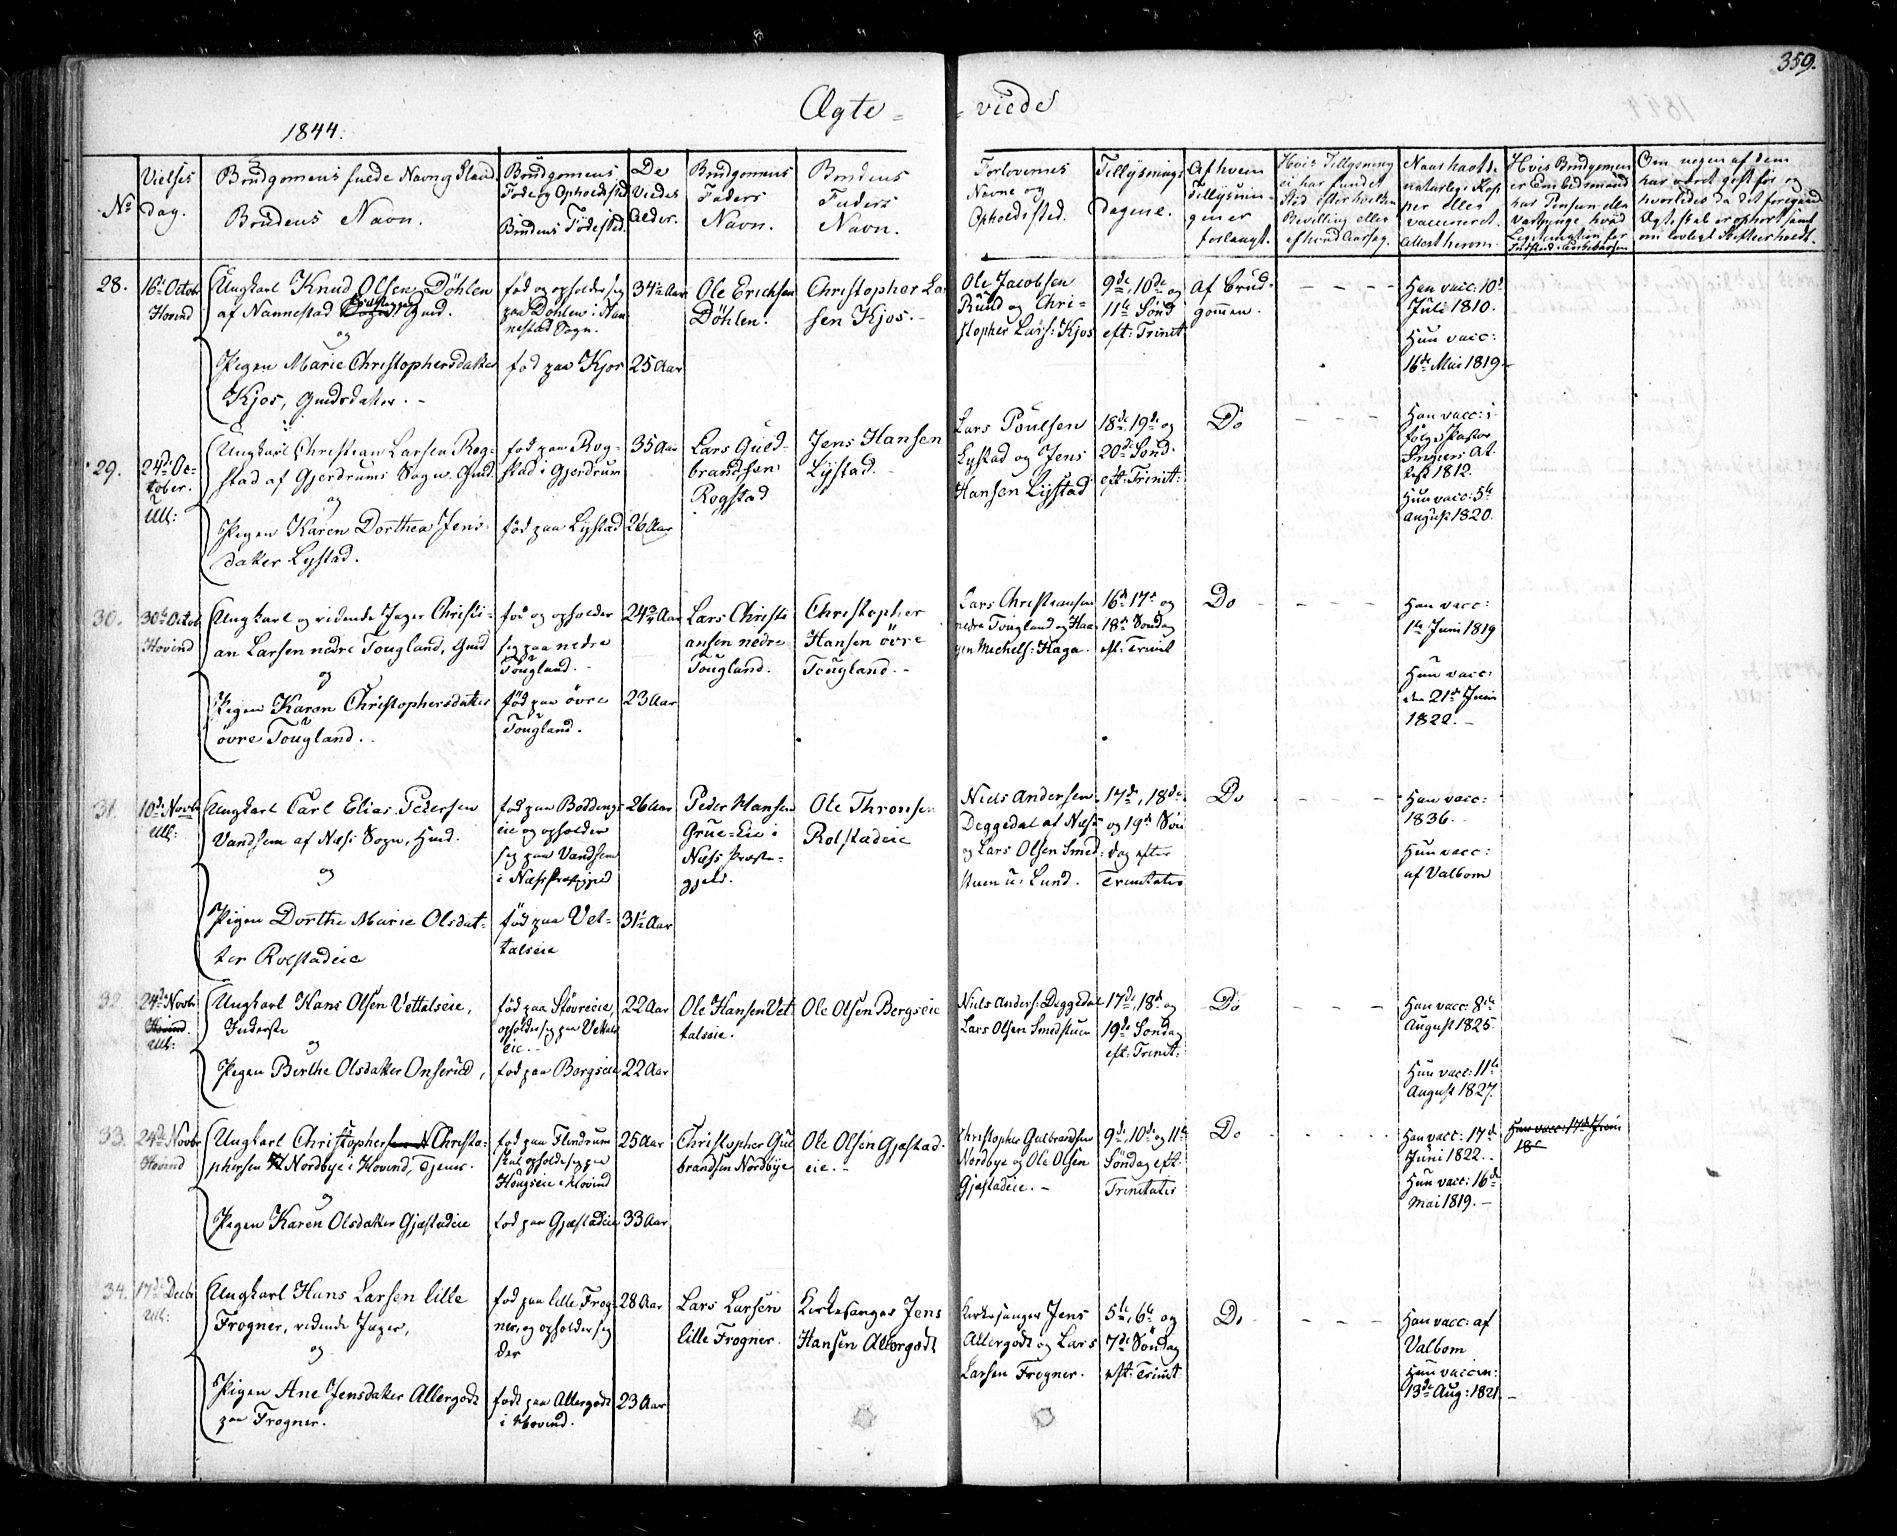 359.
Ægte-viede
1844.
No
Vielses
dag.
Brudgomens fulde Navn og Stand
Brudens Navn.
Brudgomens
Føde og Opholdsted
Brudens Fødested.
De
Viedes
Alder.
Brudgomens
Faders
Navn.
Brudens
Faders
Navn.
Forlovernes
Navne og
Opholdssted.
Tillysnings
dagene.
Af hvem
Tillysnin-
gen er
forlangt.
Hvis Tillysning
ei har fundet
Sted efter hvilken
Bevilling eller
af hvad Aarsag.
Naar havt de
naturlige Kop
per eller
vaccineret.
Attest herom.
Hvis Brudgomen
er Embedsmand
har Pension eller
Om nogen af dem
har været gift før og
hvorledes da det foregaaende
Ægteskab er ophørt samt
om lovligt Skifte er holdt.
28.
16de Octob
Hovind
Ungkarl Knud Olsen Döhlen
af Nannestad Præstegjeld Gmd.
og
Pigen Marie Christophersdatter
Kjos, Gmdsdatter. -
fød og opholder sig
paa Döhlen i Nan-
nestad Sogn.
fød paa Kjos
34½ Aar
25 Aar
Ole Erichsen
Döhlen.
Christopher Lar
sen Kjos. -
Ole Jacobsen
Ruud og Chri-
stopher Lars: Kjos
9de, 10de og
11te Sönd
eft: Trinit
Af Brud-
gommen.
Han vacc: 10de
Juli 1810.
Hun vacc:
16de Mai 1819. -
29.
24de Oc-
tober.
Ull:
Ungkarl Christian Larsen Rog-
stad af Gjerdrums Sogn. Gmd.
og
Pigen Karen Dorthea Jens-
datter Lystad.
fød paa Rog-
stad i Gjerdrum
fød paa Lystad
35 Aar
26 Aar
Lars Guld-
brandsen
Rogstad
Jens Hansen
Lystad.
Lars Poulsen
Lystad og Jens
Hansen Lystad
18de, 19de og
20de Sönd.
eft: Trinit:
Do
Han vacc: i
følge Pastor
At-
test 1812.
Hun vacc: 5te
August 1820.
30.
30te Octob
Hovind
Ungkarl og ridende Jæger Christi-
an Larsen nedre Tougland, Gmd
og
Pigen Karen Christophersdatter
övre Tougland. -
fød og opholder
sig paa nedre
Tougland. -
fød paa övre
Tougland.
24¾ Aar
23 Aar
Lars Christi
ansen nedre
Tougland.
Christopher
Hansen övre
Tougland. -
Lars Christiansen
nedre Tougland og Haa-
gen Michels: Haga.
16de 17de og
18de Søndag
eft: Trinit
Do
Han vacc:
1te Juni 1819
Hun vacc:
den 21de Juni
1822. -
31.
10de Novbr
Ull:
Ungkarl Carl Elias Pedersen
Vandsem af Næs Sogn, Gmd.
og
Pigen Dorthe Marie Olsdat-
ter Rolstadeie
fød paa Boddings
eie og opholder
sig paa Vandsem
i Næs Præstegjeld
fød paa Vet-
talseie
26 Aar
31½ Aar
Peder Hansen
Grue-Eie i
Næss Præste-
gjeld.
Ole Thronsen
Rolstadeie
Niels Andersen
Deggedal af Næss
og Lars Olsen Smed-
stuen u: Lund.
17de, 18de
og 19de Søn
dag efter
Trinitatis
Do
Han vacc:
1836.
Hun vacc:
af Valbom
32
24de Novbr
Hovind.
Ull:
Ungkarl Hans Olsen Vettalseie,
Inderste
og
Pigen Berthe Olsdatter Onserud,
fød paa Støvreeie,
opholder sig paa Vettals
eie. -
fød paa Bergseie
22 Aar
22 Aar
Ole Hansen Vet
talseie.
Ole Olsen Bergseie
Niels Anders: Deggedal
Lars Olsen Smedstuen
17de, 18de og
19de Søndag
eft: Trinit:
Do
Han vacc: 8de
August 1825
Hun vacc: 11te
August 1827.
33.
24de Novbr
Hovind
Ungkarl Christopher Christo-
phersen Nordbye i Hovind, Tjener.
og
Pigen Karen Olsdatter Gjæstadeie
fød paa Flindrum
skal opholde sig paa
Hougseie i Hovind
fød paa Gjæstadeie
25 Aar
33 Aar
Christopher Gul
brandsen Nordbye
Ole Olsen Gjæstad-
eie. -
Christopher Gulbrandsen
Nordbye og Ole Olsen
Gjæstadeie. -
9de, 10de og 11te
Søndag eft:
Trinitatis
Do
Han vacc: 17de
Juni 1822. -
Hun vacc: 16de
Mai 1819. -
Han vacc: 17de Juni
18
34.
17de Decbr
Ull:
Ungkarl Hans Larsen lille
Frogner, ridende Jæger,
og
Pigen Ane Jensdatter Allergodt
paa Frogner.
fød paa lille Frog-
ner, og opholder sig
der
født paa Allergodt
i Hovind.
28 Aar
23 Aar
Lars Larsen
lille Frogner.
Kirkesanger Jens
Hansen Allergodt
Kirkesanger Jens
Allergodt og Lars
Larsen Frogner.
5te, 6te og
7de Søndag
eft: Trinit
Do
Han vacc: af
Valbom
Hun vaccin:
13de Aug: 1821. -